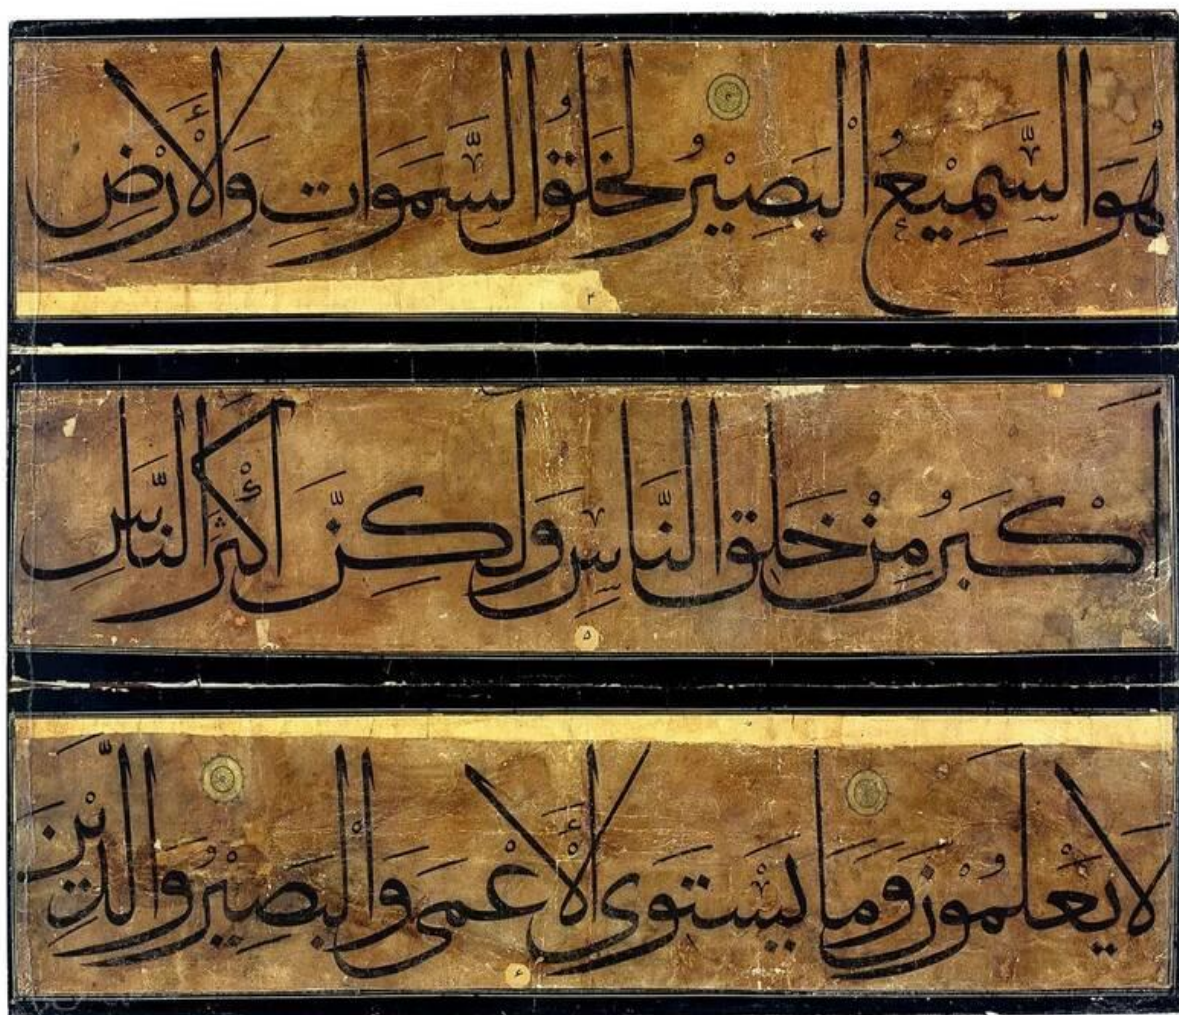 هُوَ السَّمِيْعُ الْبَصِيْرُ لَخَلْقُ السَّمَوَاتِ وَالْأَرْضِ
٣
اَكْبَرُ مِنْ خَلْقِ النَّاسِ وَلَكِنَّ أَكْثَرَ النَّاسِ
٥
لَا يَعْلَمُوْنَ وَمَا يَسْتَوِى الْأَعْمَى وَالْبَصِيْرُ وَالَّذِيْنَ
۶